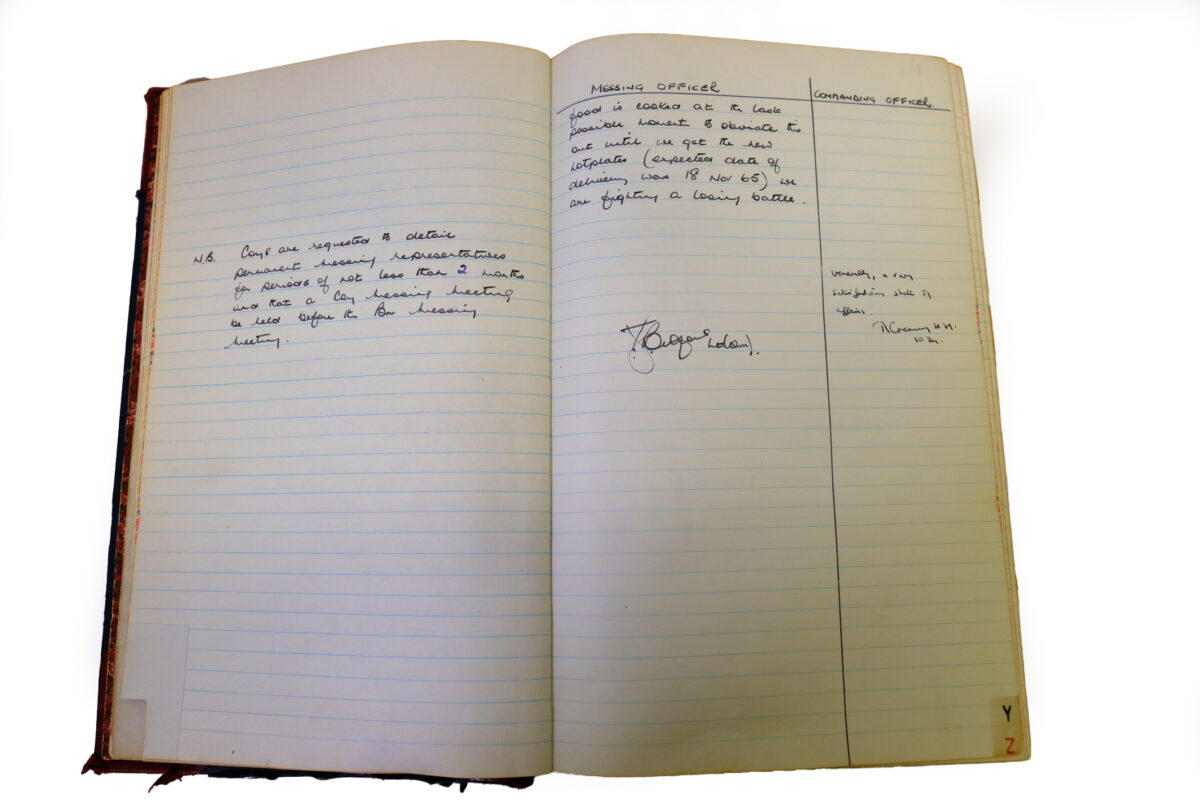 N.B. Coys are requested to detail
permanent messing representatives
for periods of not less than 2 months
and that a Coy messing meeting
be held before the Bn messing
meeting.
MESSING OFFICER
food is cooked at the last
possible moment to obviate this
but until we get the new
hotplates (expected date of
delivery was 18 Nov 65) we
are fighting a losing battle.
COMMANDING OFFICER.
Generally, a very
satisfactory state of
affairs.
Y
Z